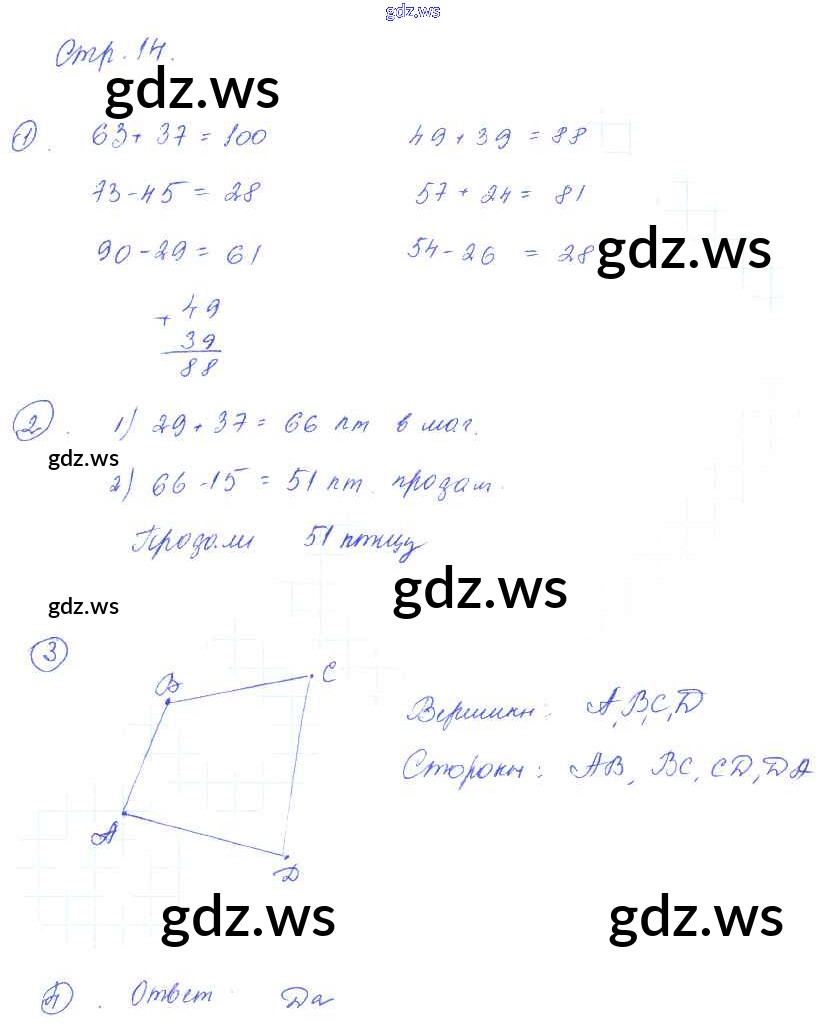 gdz.ws
Стр. 14.
gdz.ws
1. 63 + 37 = 100 49 + 39 = 88
73 - 45 = 28 57 + 24 = 81
90 - 29 = 61 54 - 26 = 28
gdz.ws
+ 49
39
88
2. 1) 29 + 37 = 66 пт в маг.
gdz.ws
2) 66 - 15 = 51 пт. продал.
Продали 51 птицу
gdz.ws
gdz.ws
3
B C
Вершины: A, B, C, D
Стороны: AB, BC, CD, DA
A
D
gdz.ws gdz.ws
4. Ответ Да